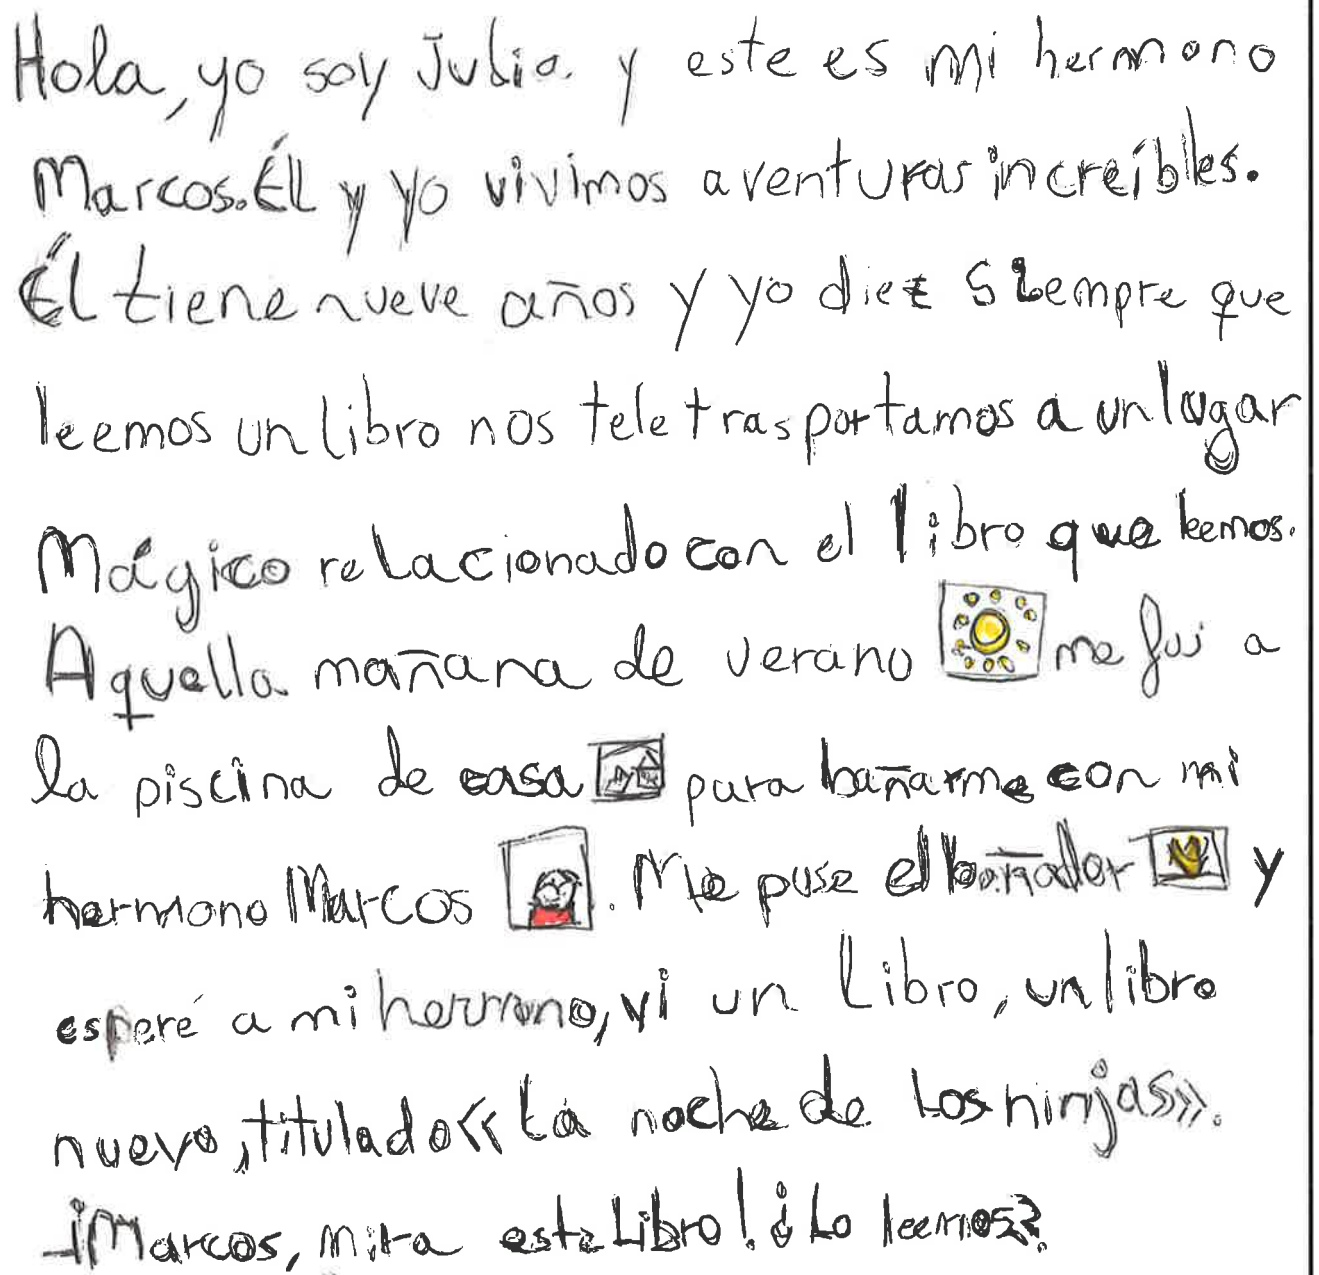 Hola, yo soy Julia y este es mi hermano
Marcos. Él y yo vivimos aventuras increíbles.
Él tiene nueve años y yo diez Siempre que
leemos un libro nos teletrasportamos a un lugar
Mágico relacionado con el libro que leemos.
Aquella mañana de verano me fui a
la piscina de casa para bañarme con mi
hermano Marcos. Me puse el bañador y
esperé a mi hermano, vi un libro, un libro
nuevo, titulado «La noche de los ninjas».
-¡Marcos, mira este libro! ¿Lo leemos?